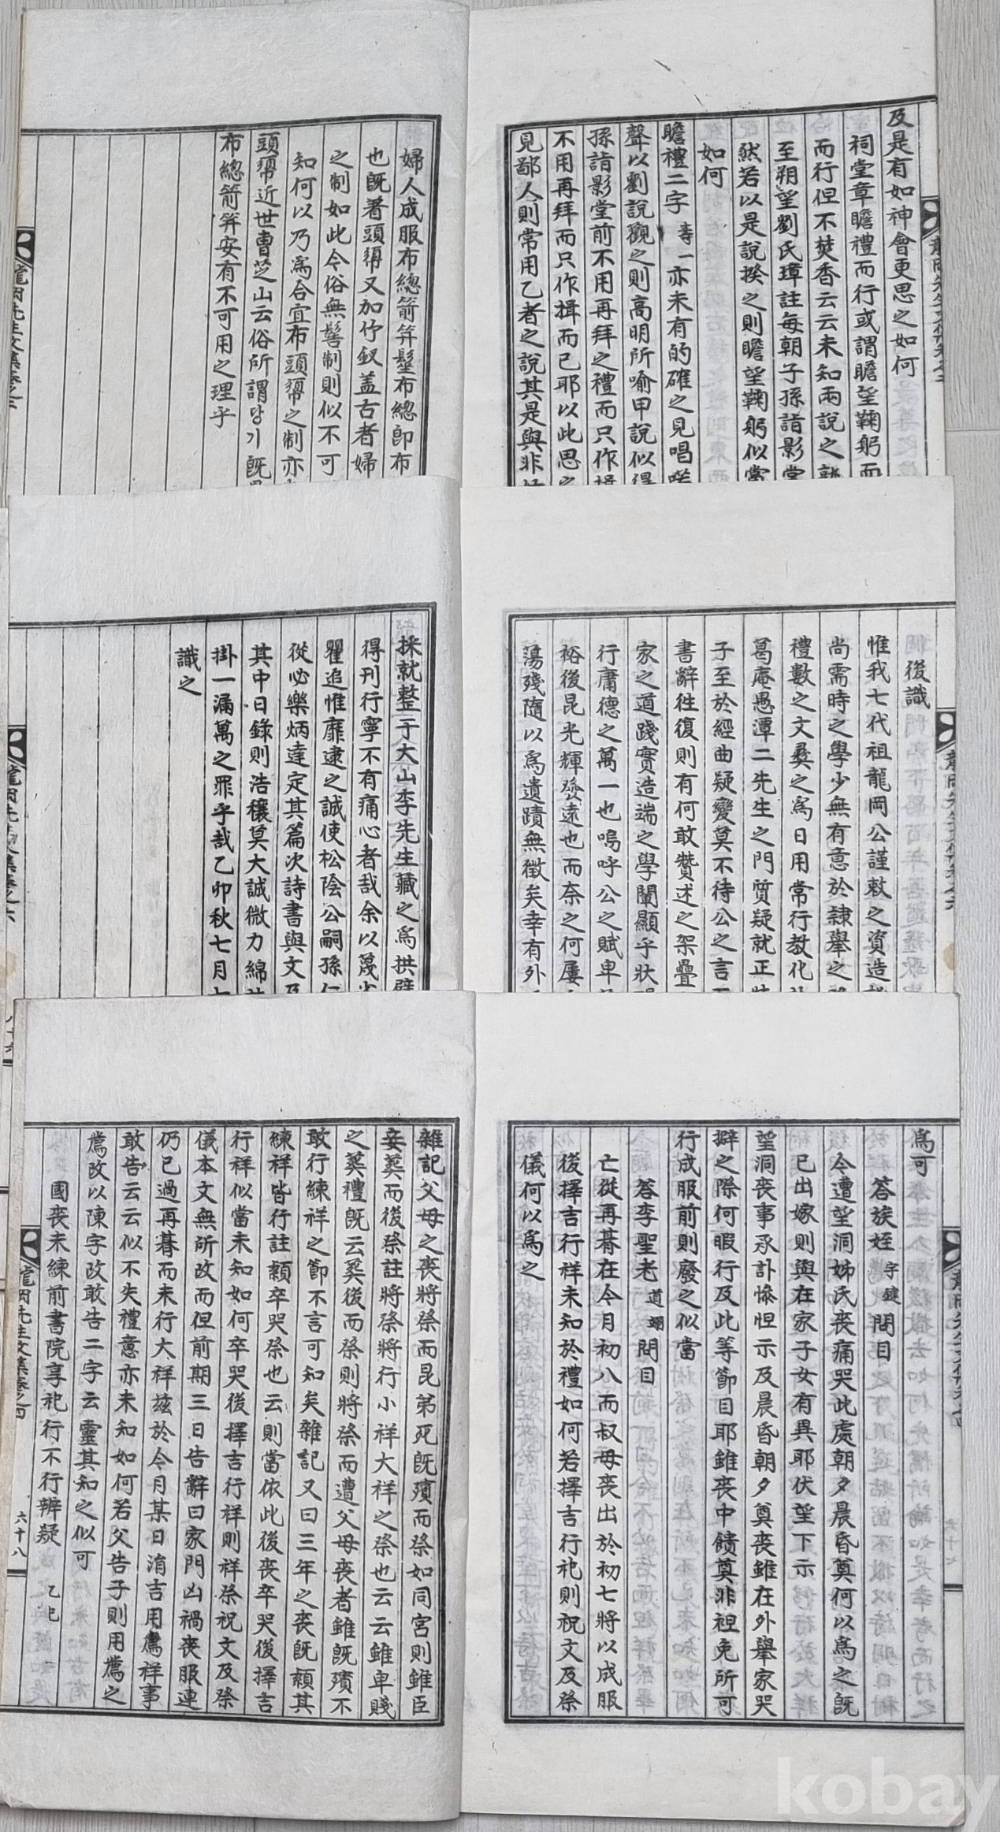 及是有如神會更思之如何
祠堂章瞻禮而行或謂瞻望鞠躬而
而行但不焚香云云未知兩說之孰
至朔望劉氏璋註每朝子孫詣影堂
然若以是說揆之則瞻望鞠躬似當
如何
瞻禮二字 寿一 亦未有的確之見唱喏
聲以劉說觀之則高明所喻甲說似得
孫詣影堂前不用再拜之禮而只作揖
不用再拜而只作揖而已耶以此思之
見鄙人則常用乙者之說其是與非
婦人成服布總箭笄髽布總卽布
也旣著頭𢄼又加竹釵蓋古者婦
之制如此今俗無髽制則似不可
知何以乃爲合宜布頭𢄼之制亦
頭𢄼近世曺芝山云俗所謂당기旣
布總箭笄安有不可用之理乎
龍岡先生文集卷之二
後識
惟我七代祖龍岡公謹敕之資造
尙需時之學少無有意於隷擧之
禮數之文彛之爲日用常行敎化
葛庵愚潭二先生之門質疑就正
子至於經曲疑變莫不待公之言
書辭往復則有何敢贊述之架疊
家之道踐實造端之學闡顯乎狀
行庸德之萬一也嗚呼公之賦卑
裕後昆光輝發遠也而奈之何屢
蕩殘隨以爲遺蹟無徵矣幸有外
採就整于大山李先生藏之爲拱璧
得刊行寧不有痛心者哉余以蔑
瞿追惟靡逮之誠使松陰公嗣孫仁
從必樂炳達定其篇次詩書與文及
其中日錄則浩穰莫大誠微力綿
掛一漏萬之罪乎哉乙卯秋七月
識之
龍岡先生文集卷之六
爲可
答族姪 宇鍵 問目
今遭望洞姊氏喪痛哭此處朝夕晨昏奠何以爲之旣
已出嫁則與在家子女有異耶伏望下示
望洞喪事承訃慘怛示及晨昏朝夕奠喪雖在外擧家哭
擗之際何暇行及此等節目耶雖喪中饋奠非袒免所可
行成服前則廢之似當
答李聖老 道翊 問目
亡從再朞在今月初八而叔母喪出於初七將以成服
後擇吉行祥未知於禮如何若擇吉行祀則祝文及祭
儀何以爲之
雜記父母之喪將祭而昆弟死旣殯而祭如同宮則雖臣
妾葬而後祭註將祭將行小祥大祥之祭也云云雖卑賤
之葬禮旣云葬後而祭則將祭而遭父母喪者雖旣殯不
敢行練祥之節不言可知矣雜記又曰三年之喪旣顈其
練祥皆行註顈卒哭祭也云則當依此後喪卒哭後擇吉
行祥似當未知如何卒哭後擇吉行祥則祥祭祝文及祭
儀本文無所改而但前期三日告辭曰家門凶禍喪服連
仍已過再朞而未行大祥玆於今月某日涓吉用薦祥事
敢告云云似不失禮意亦未知如何若父告子則用薦之
薦改以陳字改敢告二字云靈其知之似可
國喪未練前書院享祀行不行辨疑 乙巳
龍岡先生文集卷之四
六十八
kobay